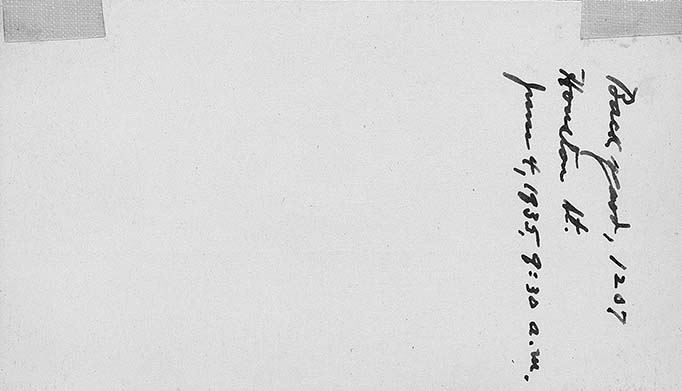 Back yard, 1207
Houston St.
June 4, 1935, 9:30 a.m.